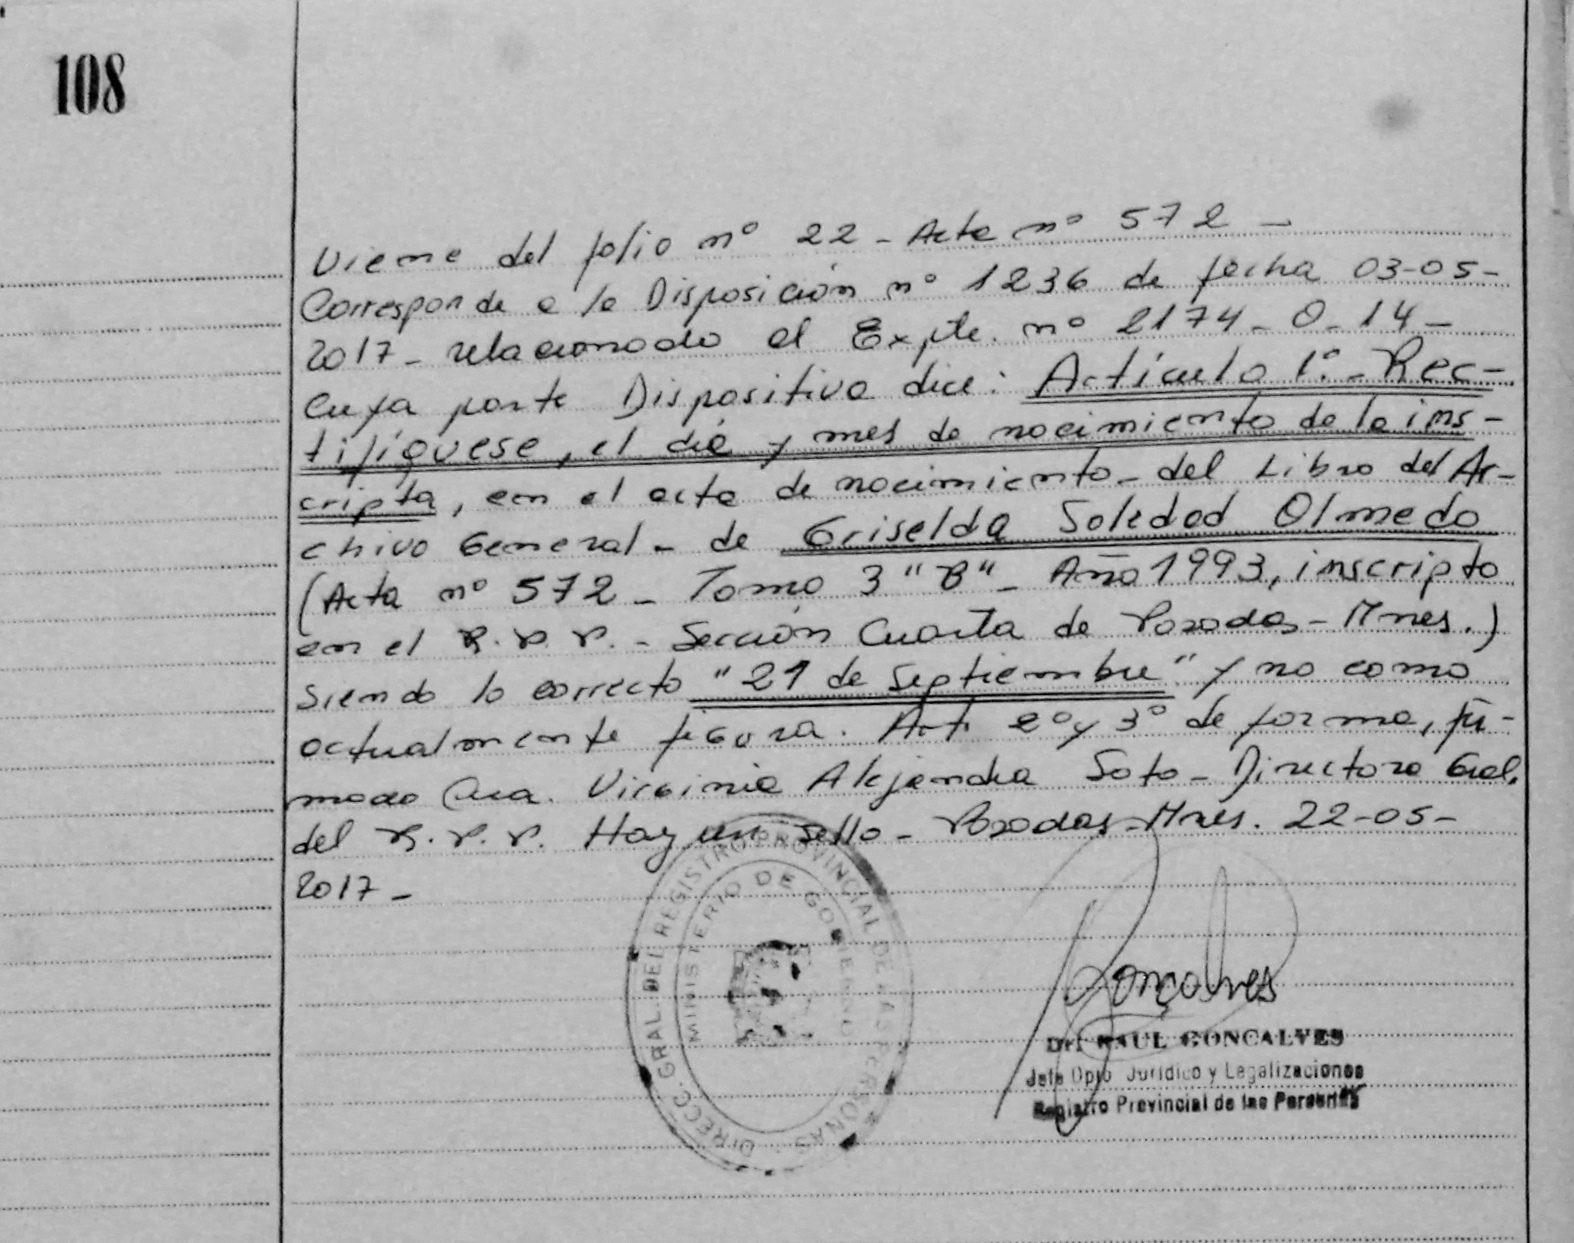 108
Viene del folio nº 22 - Acta nº 572 -
Corresponde a la Disposición nº 1236 de fecha 03-05-
2017 - relacionado al Expte. nº 2174 - O - 14 -
Cuya parte Dispositiva dice: Artículo 1º. - Rec-
tifíquese, el día y mes de nacimiento de la ins-
cripta, en el acta de nacimiento - del Libro del Ar-
chivo General - de Griselda Soledad Olmedo
(Acta nº 572 - Tomo 3 "B" - Año 1993, inscripto
en el R.P.P. - Sección Cuarta de Posadas - Mnes.)
Siendo lo correcto "21 de Septiembre" y no como
actualmente figura. Art. 2º y 3º de forma, fir-
mado Cra. Virginia Alejandra Soto - Directora Gral.
del R.P.P. Hay un sello - Posadas - Mnes. 22-05-
2017 -
DIRECC. GRAL. DEL REGISTRO PROVINCIAL DE LAS PERSONAS
MINISTERIO DE GOBIERNO
Gonçalves
Dr. RAUL GONCALVES
Jefe Dpto. Jurídico y Legalizaciones
Registro Provincial de las Personas